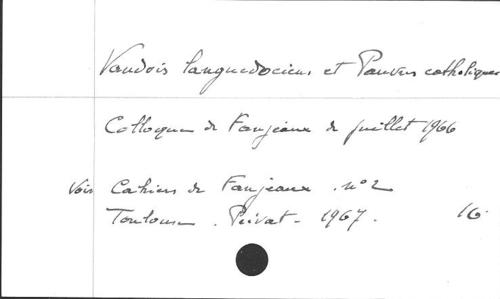 Vaudois languedociens et Pauvres catholiques
Colloque de Fanjeaux de juillet 1966
Voir Cahiers de Fanjeaux . n° 2
Toulouse . Privat - 1967 . 16